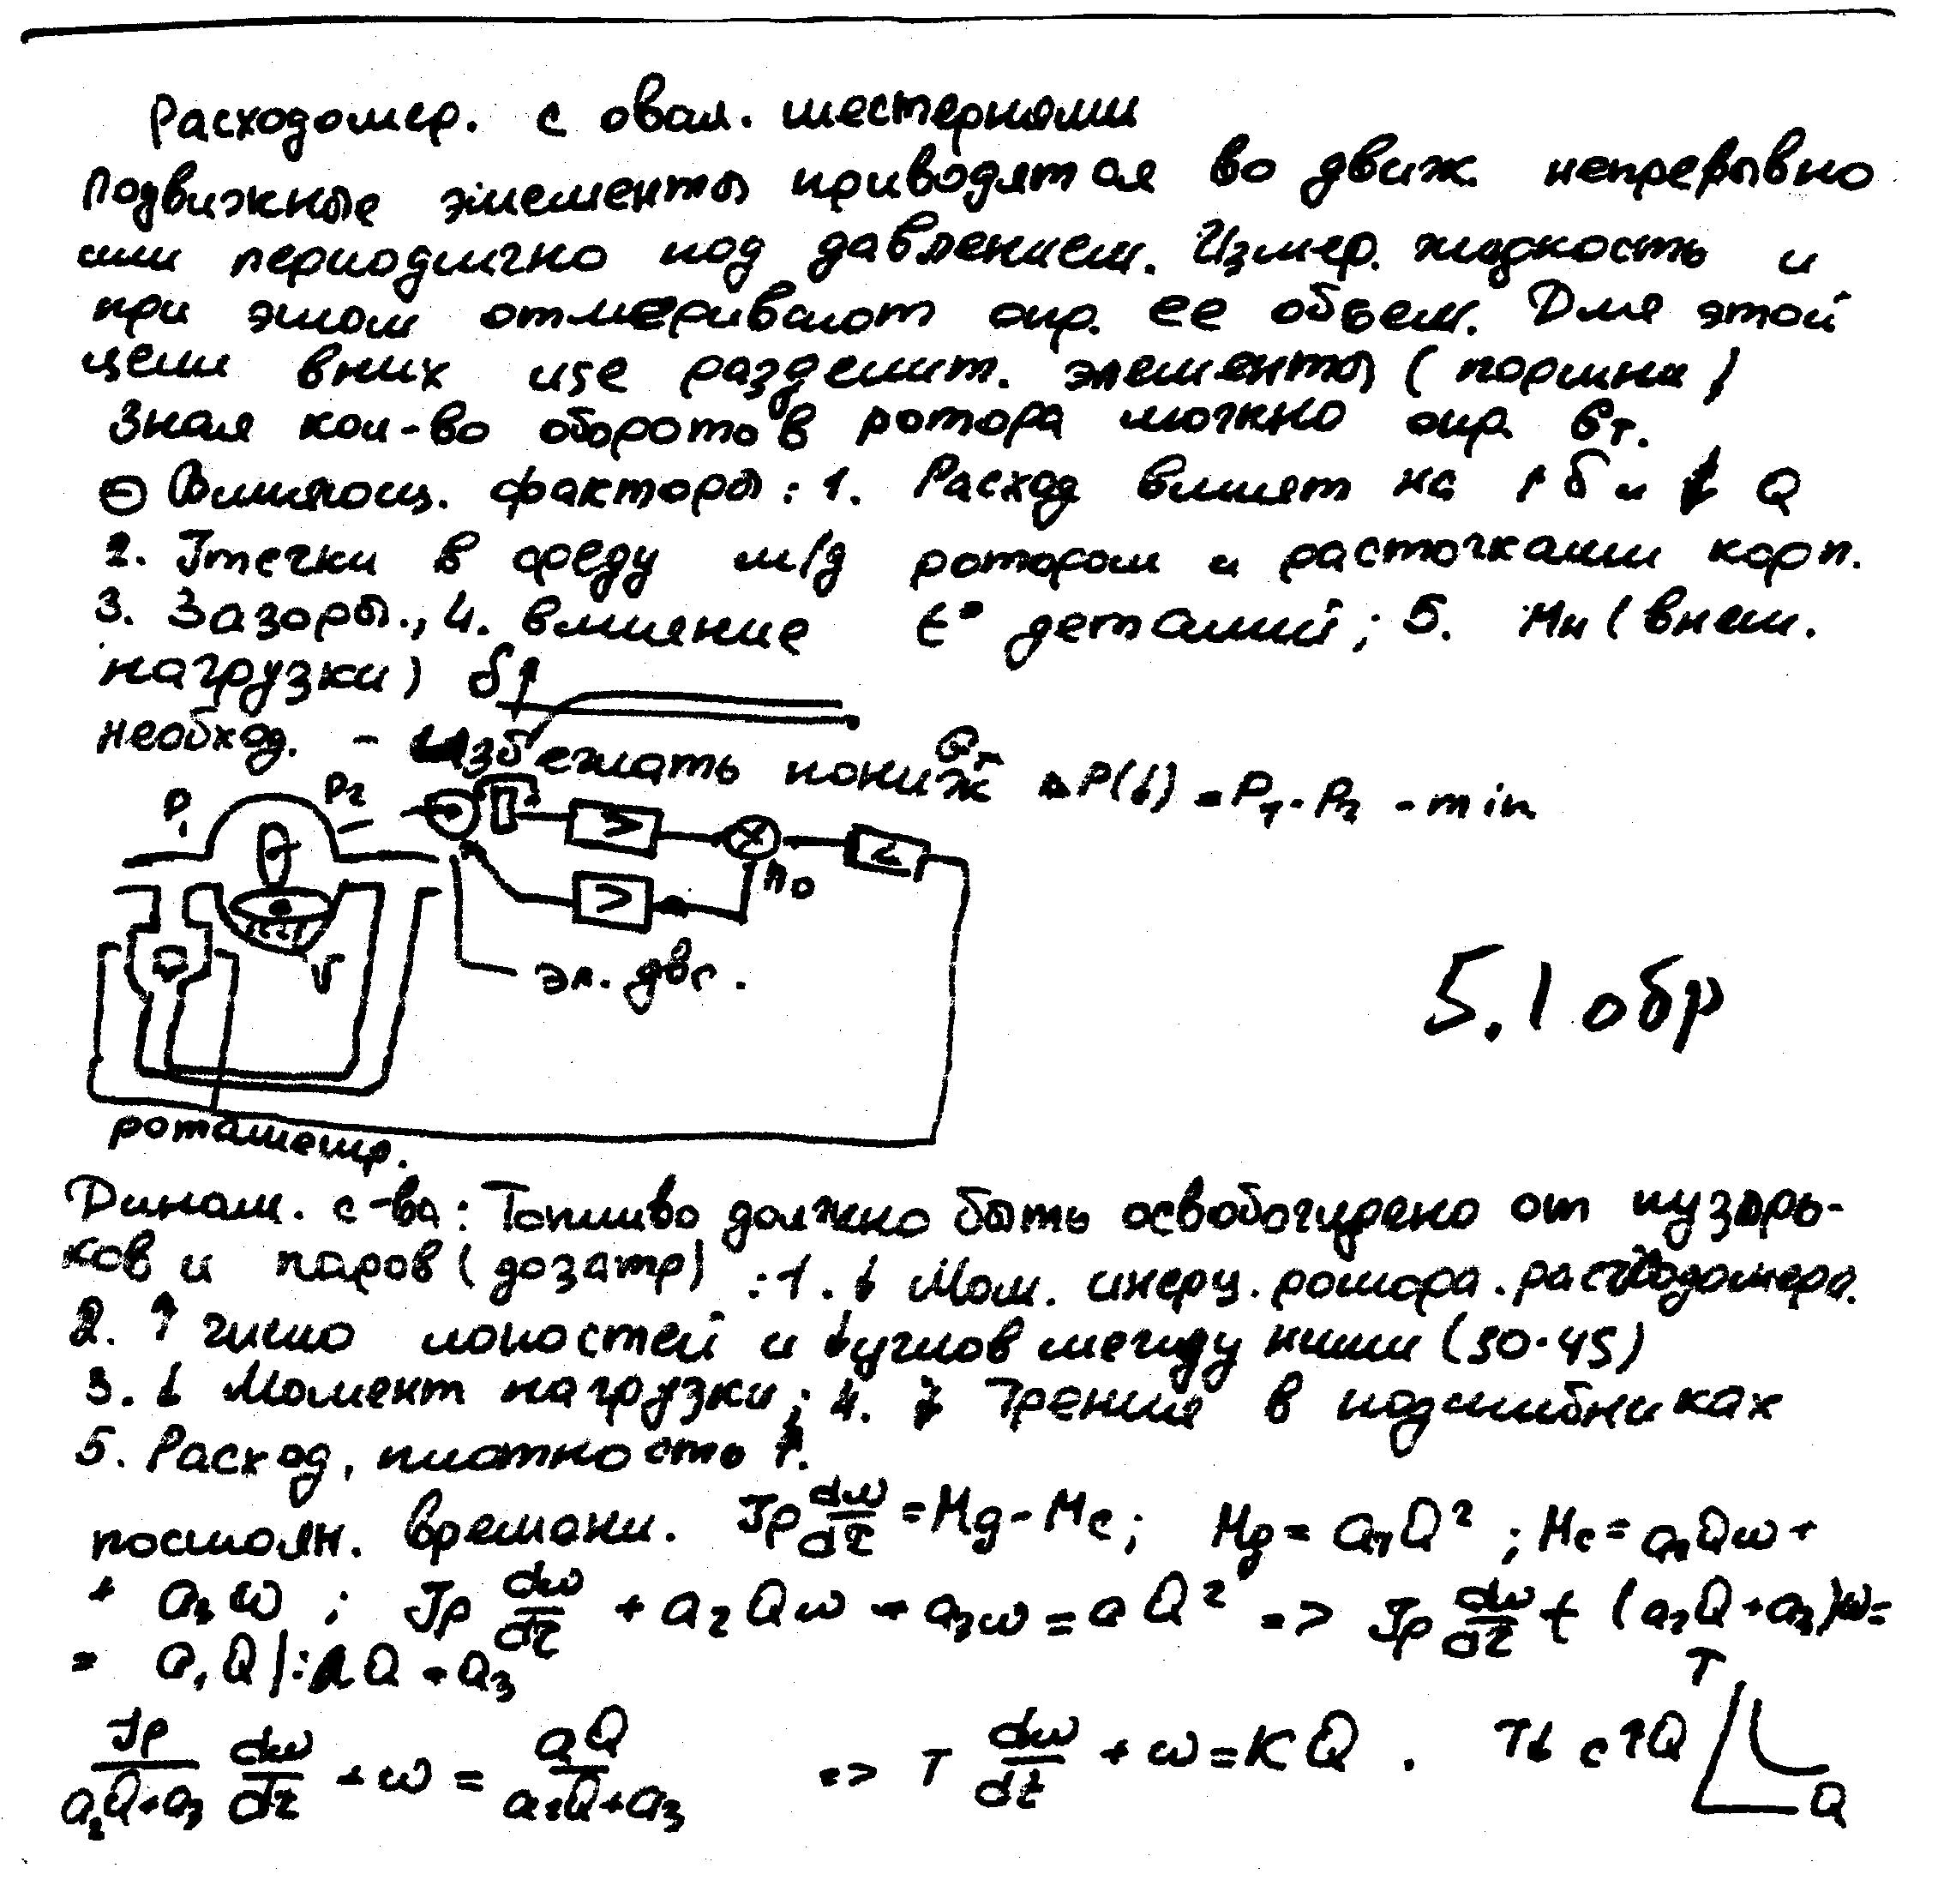 Расходомер. с овал. шестернями
Подвижные элементы приводятся во движ. непрерывно
или периодично под давлением. Измер. жидкость и
при этом отмеривают опр. ее объем. Для этой
цели в них изе разделит. элементы (поршни)
Зная кол-во оборотов ротора можно опр. Gт.
⊖ Влияющ. факторы: 1. Расход влияет на ↑δ и ↓ Q
2. Утечки в среду м/д ротором и расточками корп.
3. Зазоры., 4. влияние t° деталий; 5. Мн (внеш.
нагрузки) δ↑
необход. - избежать пониж ΔP(↓) = P1 - P2 - min
Gт
P1 P2
n0
V
эл. двс.
5.1 обр
ротаметр.
Динам. с-ва: Топливо должно быть от пузырь-
ков и паров (дозатр) : 1. ↓ Мом. инерц. ротора. расходомера.
2. ↑ число лопостей и ↓ углов между ними (30-45)
3. ↓ Момент нагрузки; 4. ↓ Трение в подшибниках
5. Расход, плотность ↑.
постоян. времени. Jp dω/dτ = Mg - Mc; Mg = a1Q²; Mc = a2Qω +
+ a3ω; Jp dω/dτ + a2Qω + a3ω = aQ² => Jp dω/dτ + (a2Q + a3)ω =
= a1Q |: a2Q + a3
Jp/(a2Q+a3) dω/dτ + ω = a1Q/(a2Q+a3) => T dω/dt + ω = KQ. T↓ с ↑Q
T
Q